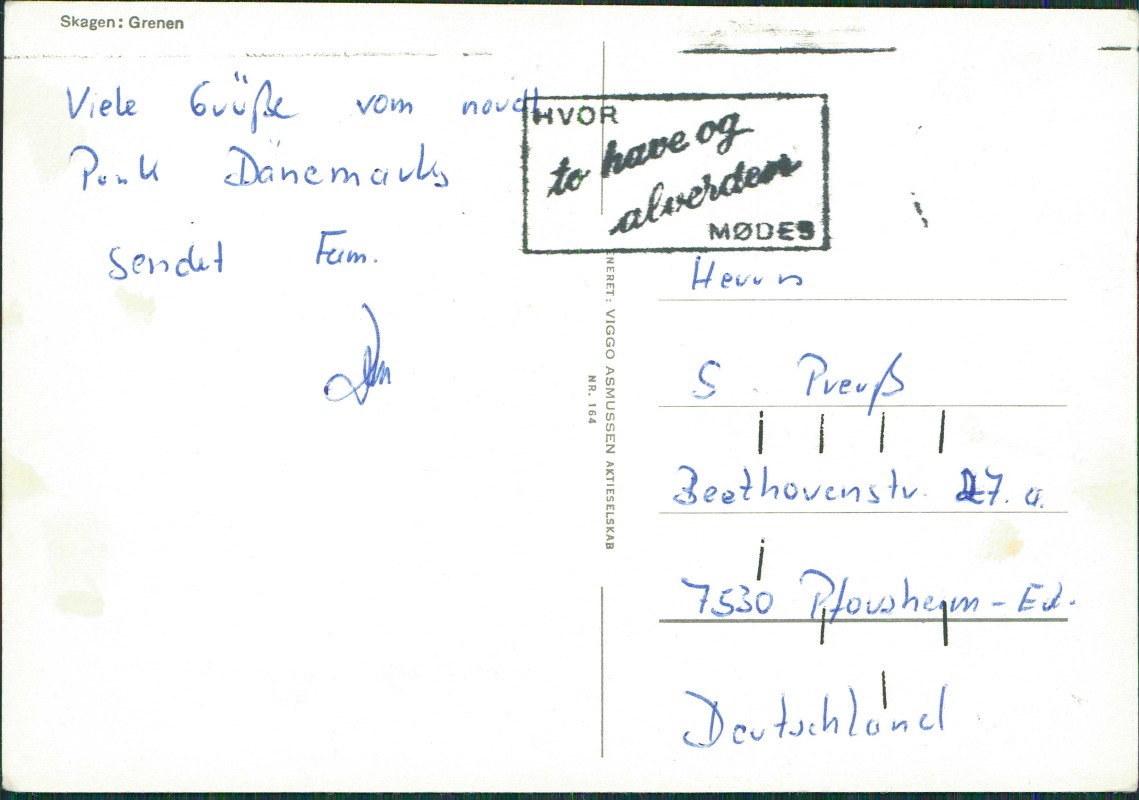 Skagen: Grenen
Viele Grüße vom nördl
Punk Dänemarks
sendet Fam.
HVOR
to have og
alverden
MØDES
NERET: VIGGO ASMUSSEN AKTIESELSKAB
NR. 164
Herrn
S. Preuß
Beethovenstr. 27. a.
7530 Pforzheim - Ed.
Deutschland